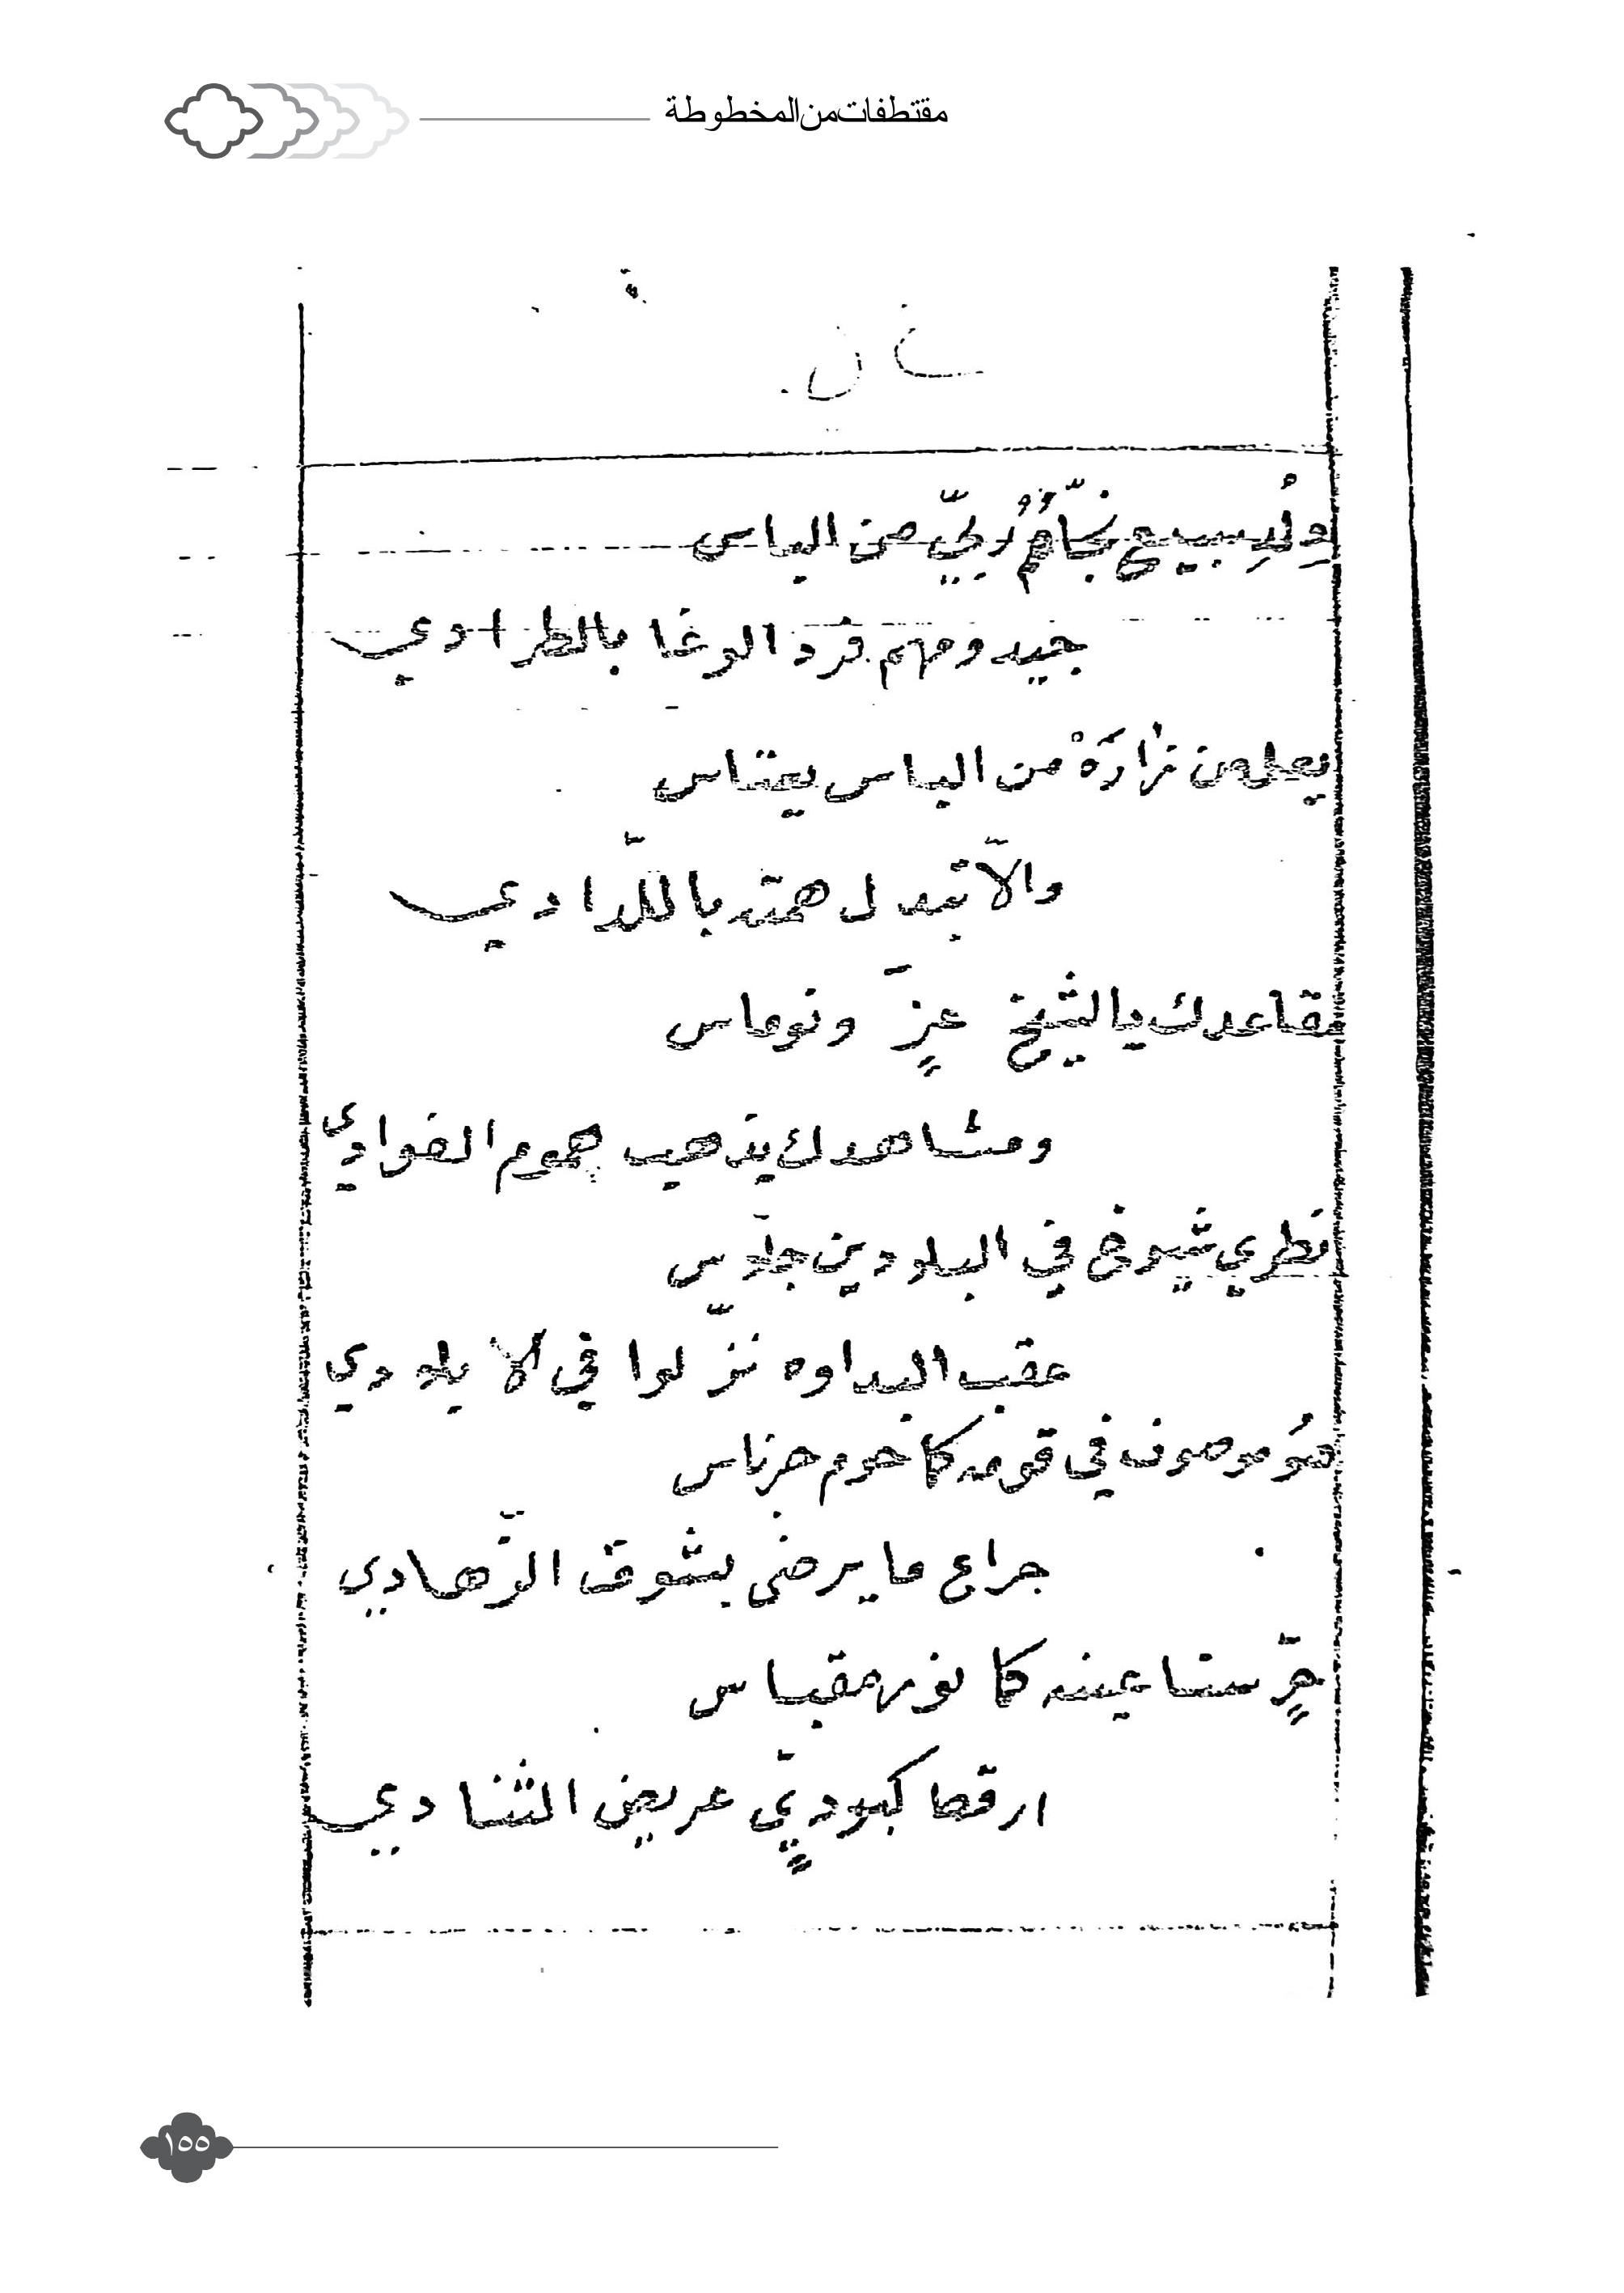 مقتطفات من المخطوطة
وِلْدِ سبيع نجّامُ رِبيّ من الباس
جيه ومهم فرد الوغا بالطرادي
يعلمن نزارَهْ من الباس يعتاس
والاّ تبدل همته باللّدادي
مقاعدك يالشيخ عزٍّ ونوماس
ومشاهدك يذهب هموم الفوادي
نطري شيوخ في البلادين جلّاس
عقب البداوه نزّلوا في لا بلادي
هُو موصوف في قومه كاخوم جرناس
جراع ما يرضى بشوف الزّهادي
حرٍّ سنا عينه كا نور مقباس
ارقطا كبوديٍّ عريض الثنادي
١٥٥